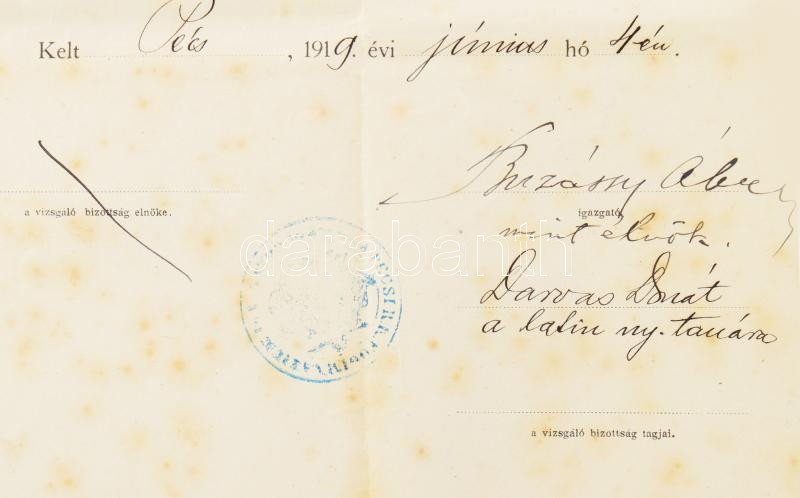 Kelt Pécs, 1919. évi június hó 4én.
a vizsgáló bizottság elnöke.
Buzássy Ábel
igazgató,
mint elnök.
Darvas Donát
a latin ny. tanára
a vizsgáló bizottság tagjai.
darabanth